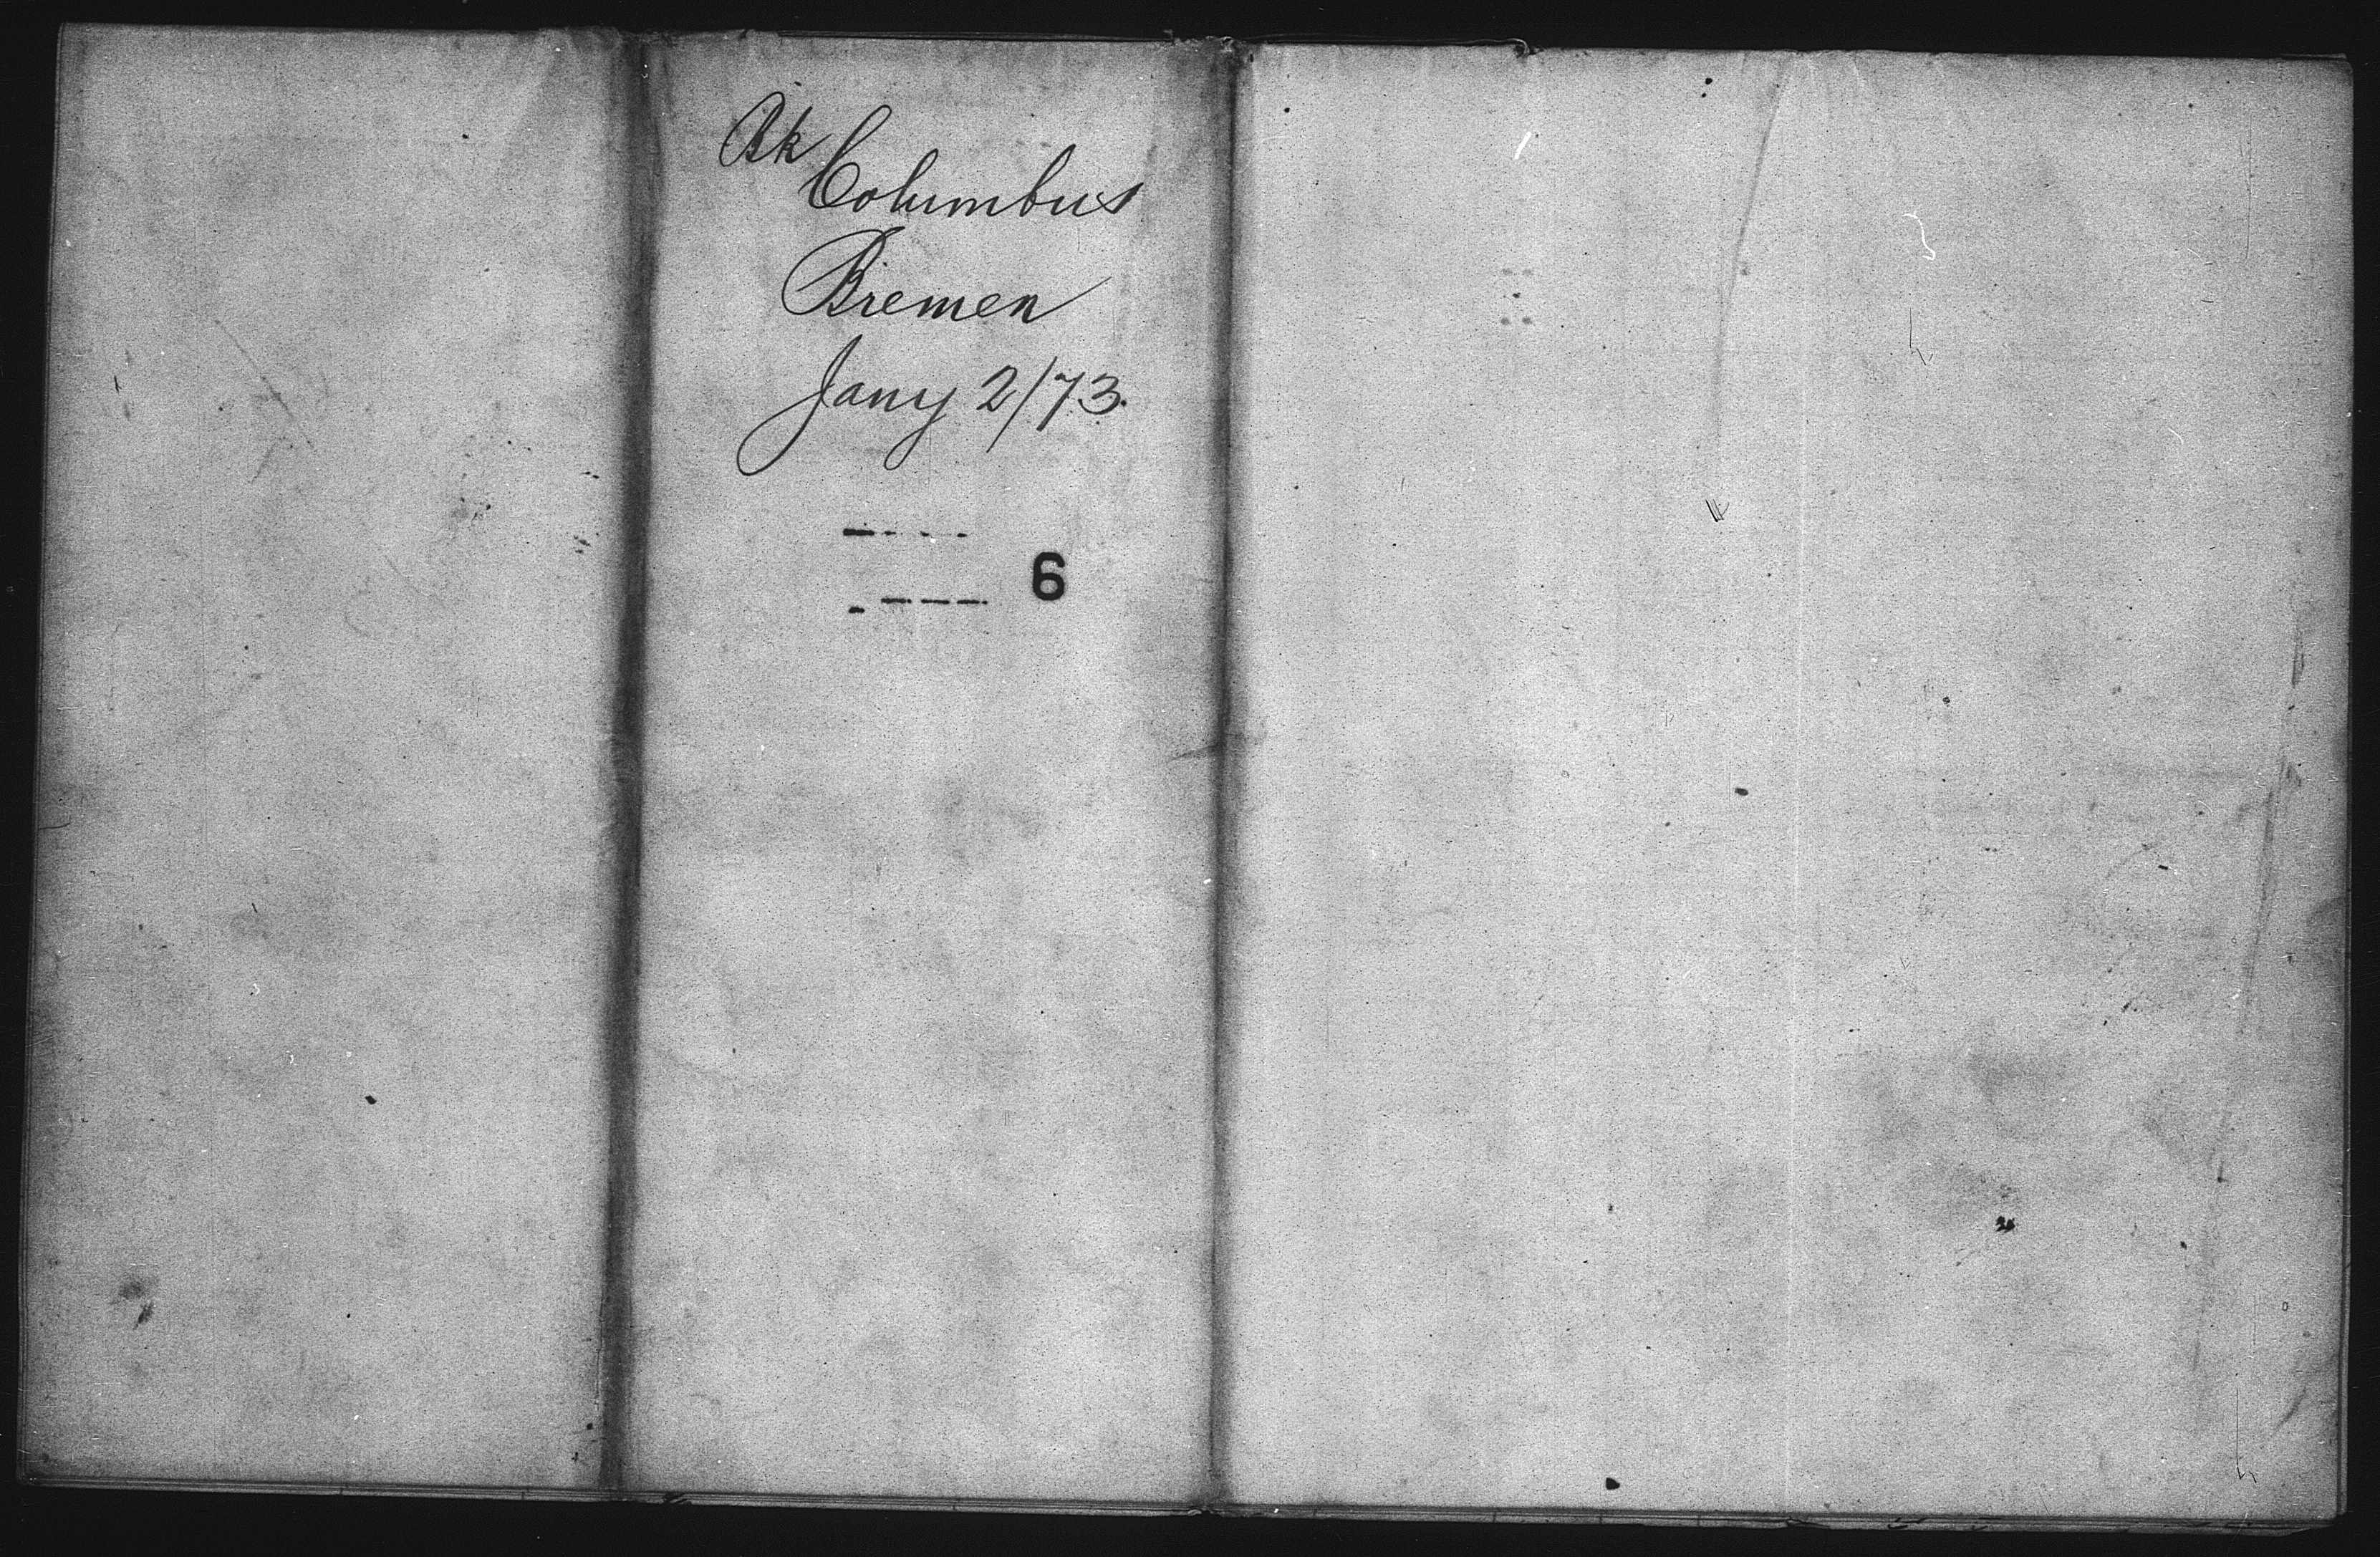 Bk
Columbus
Bremen
Jany 2/73.
6